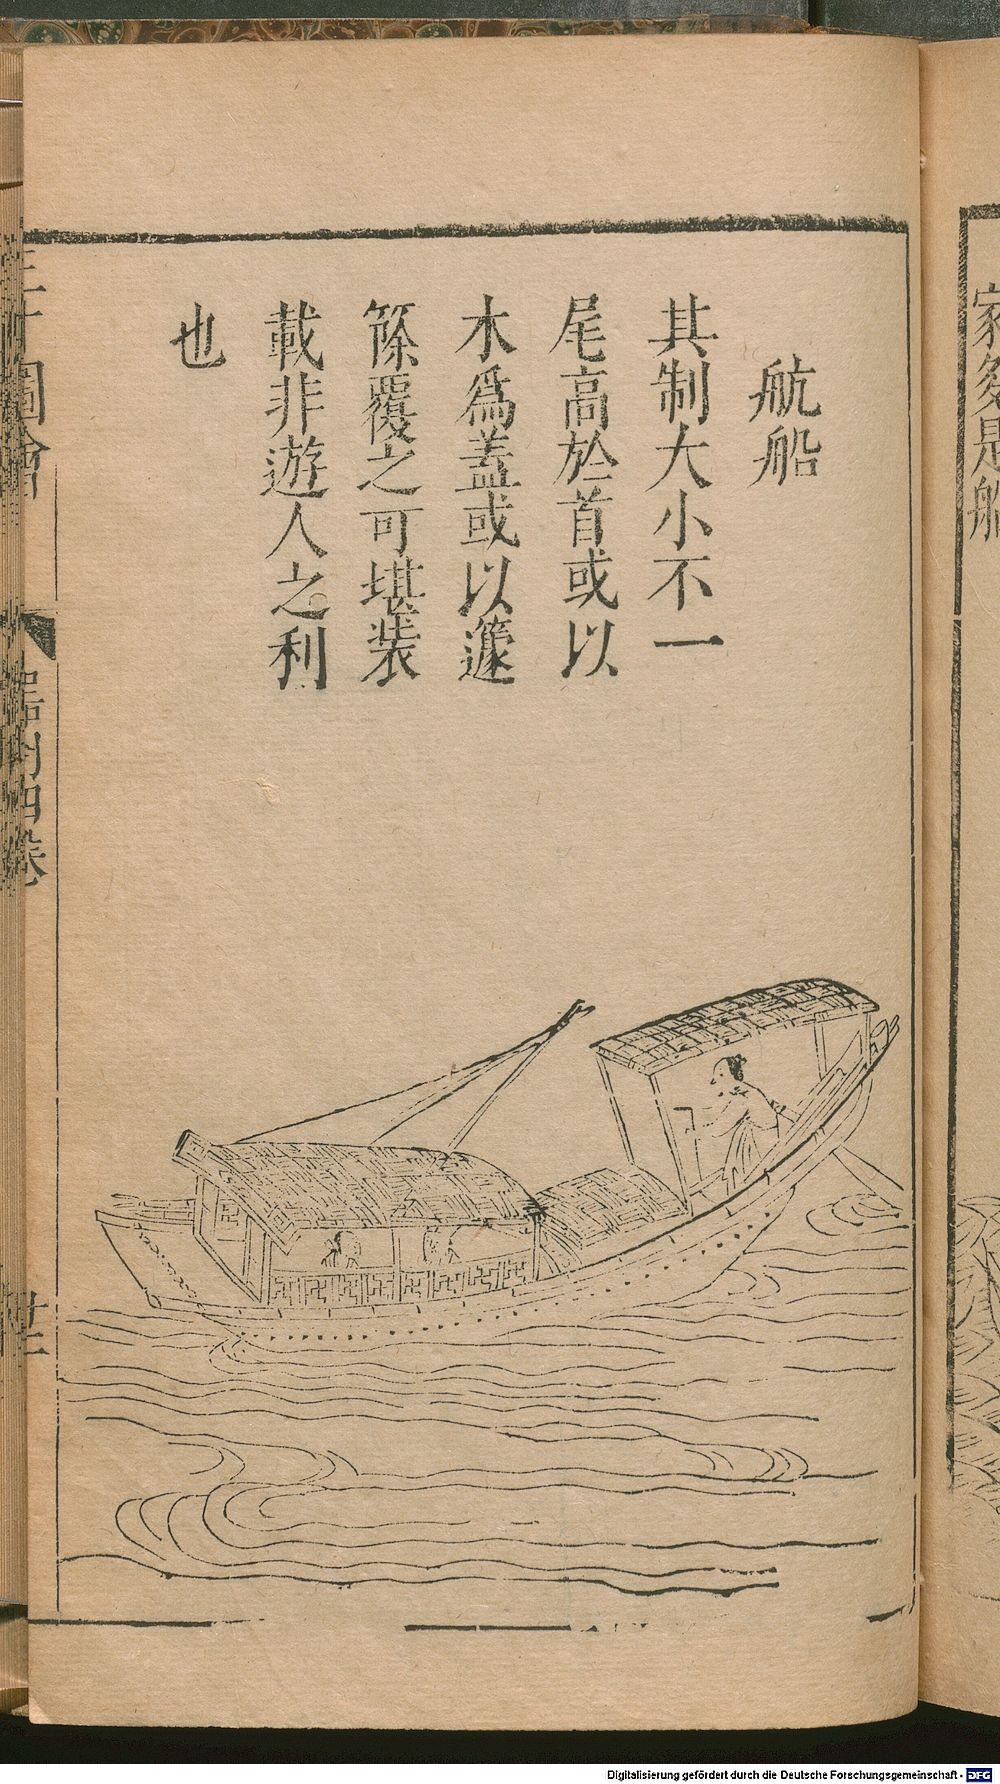 航船
其制大小不一
尾高於首或以
木爲蓋或以籧
篨覆之可堪裝
載非遊人之利
也
圖會
器用四卷
Digitalisierung gefördert durch die Deutsche Forschungsgemeinschaft - DFG